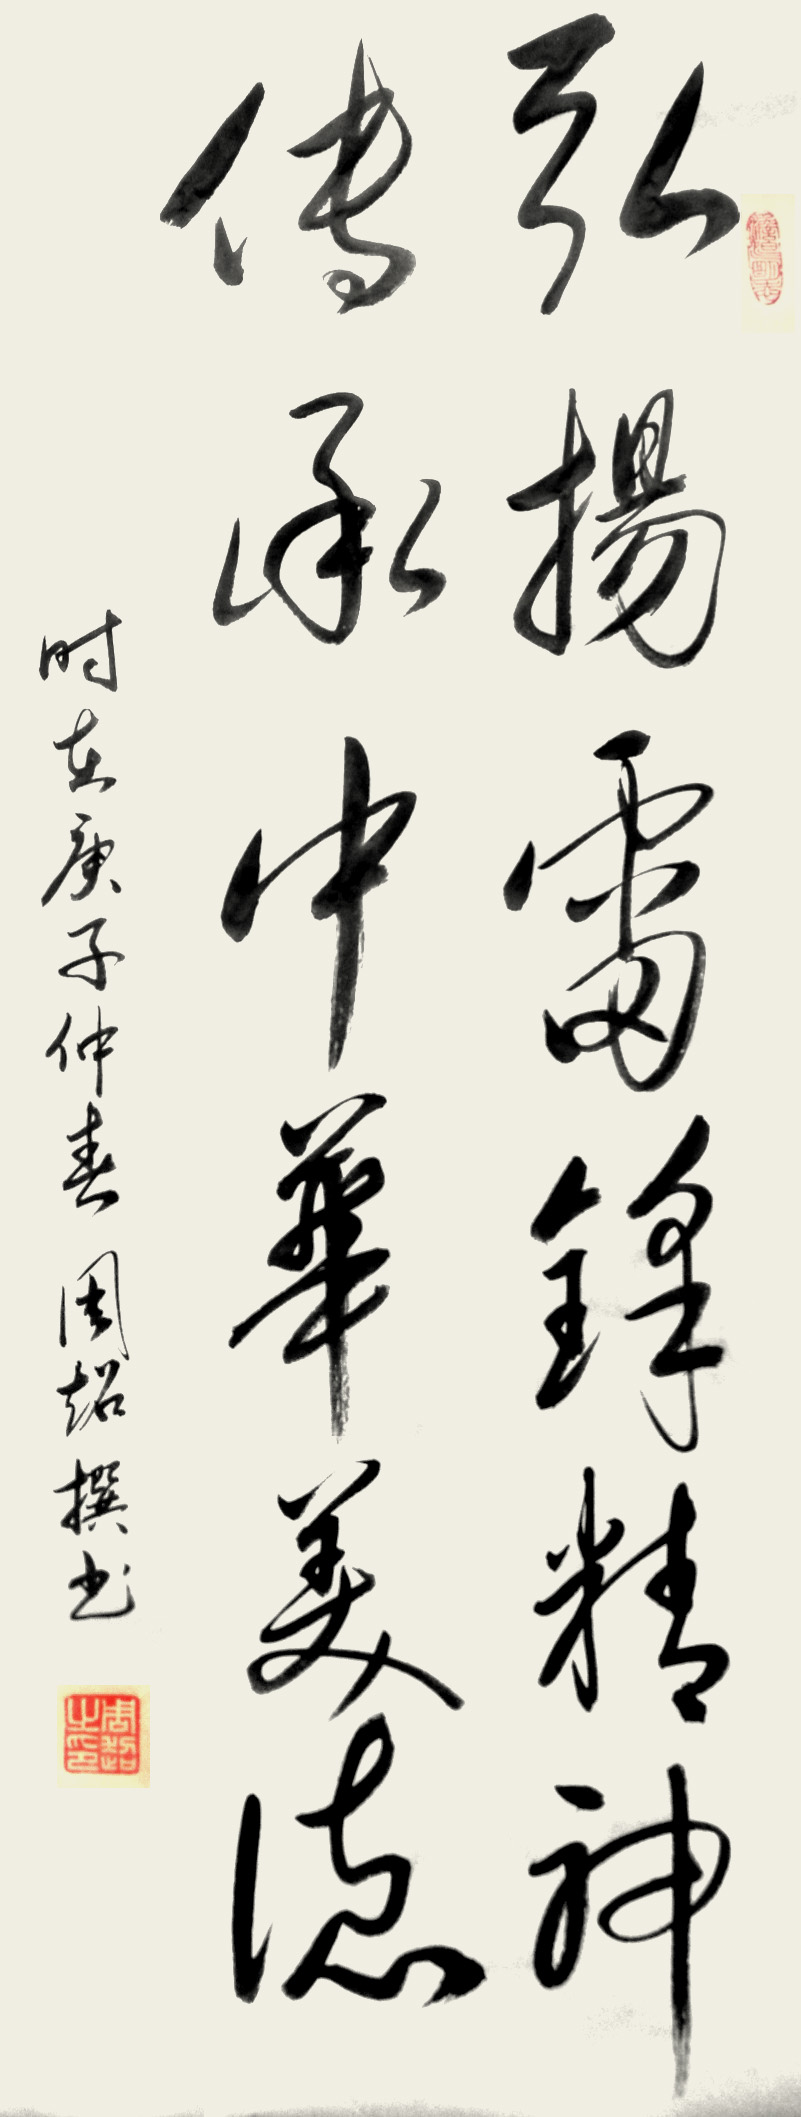 弘揚雷鋒精神
傳承中華美德
时在庚子仲春 周超撰书
周超之印